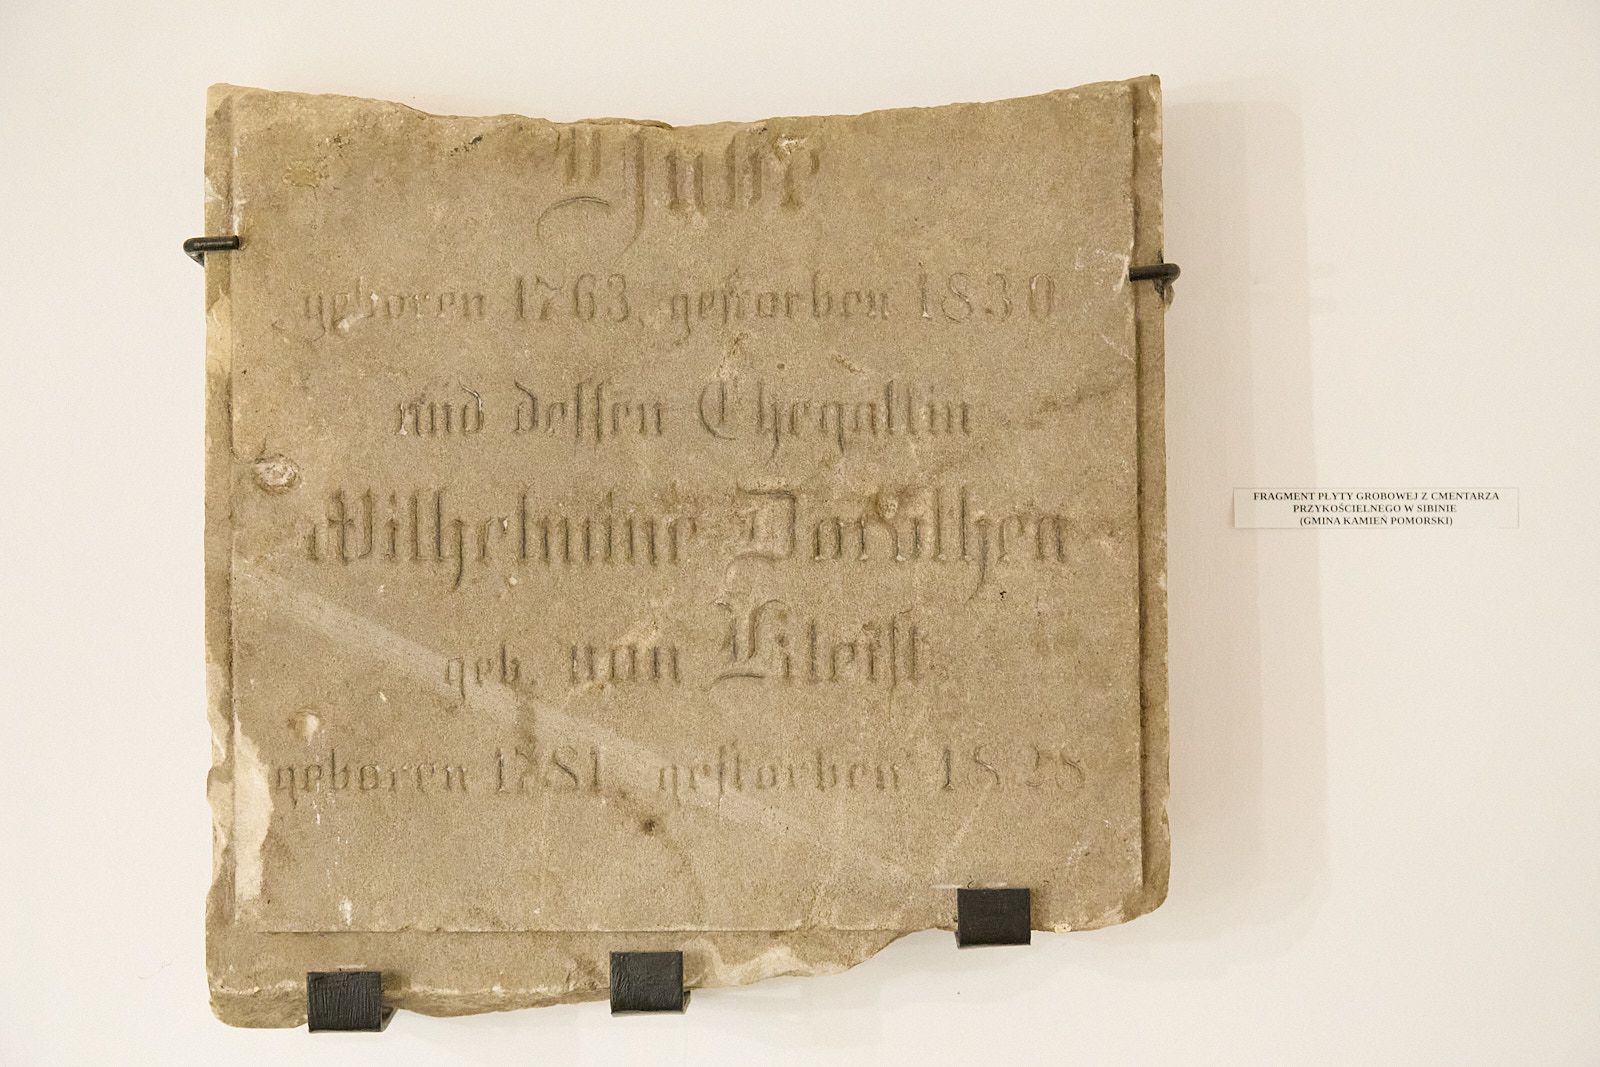 geboren 1763, gestorben 1830
und dessen Ehegattin
Wilhelmine Dorothea
geb. von Kleist
geboren 1781, gestorben 1828
FRAGMENT PŁYTY GROBOWEJ Z CMENTARZA
PRZYKOŚCIELNEGO W SIBINIE
(GMINA KAMIEŃ POMORSKI)